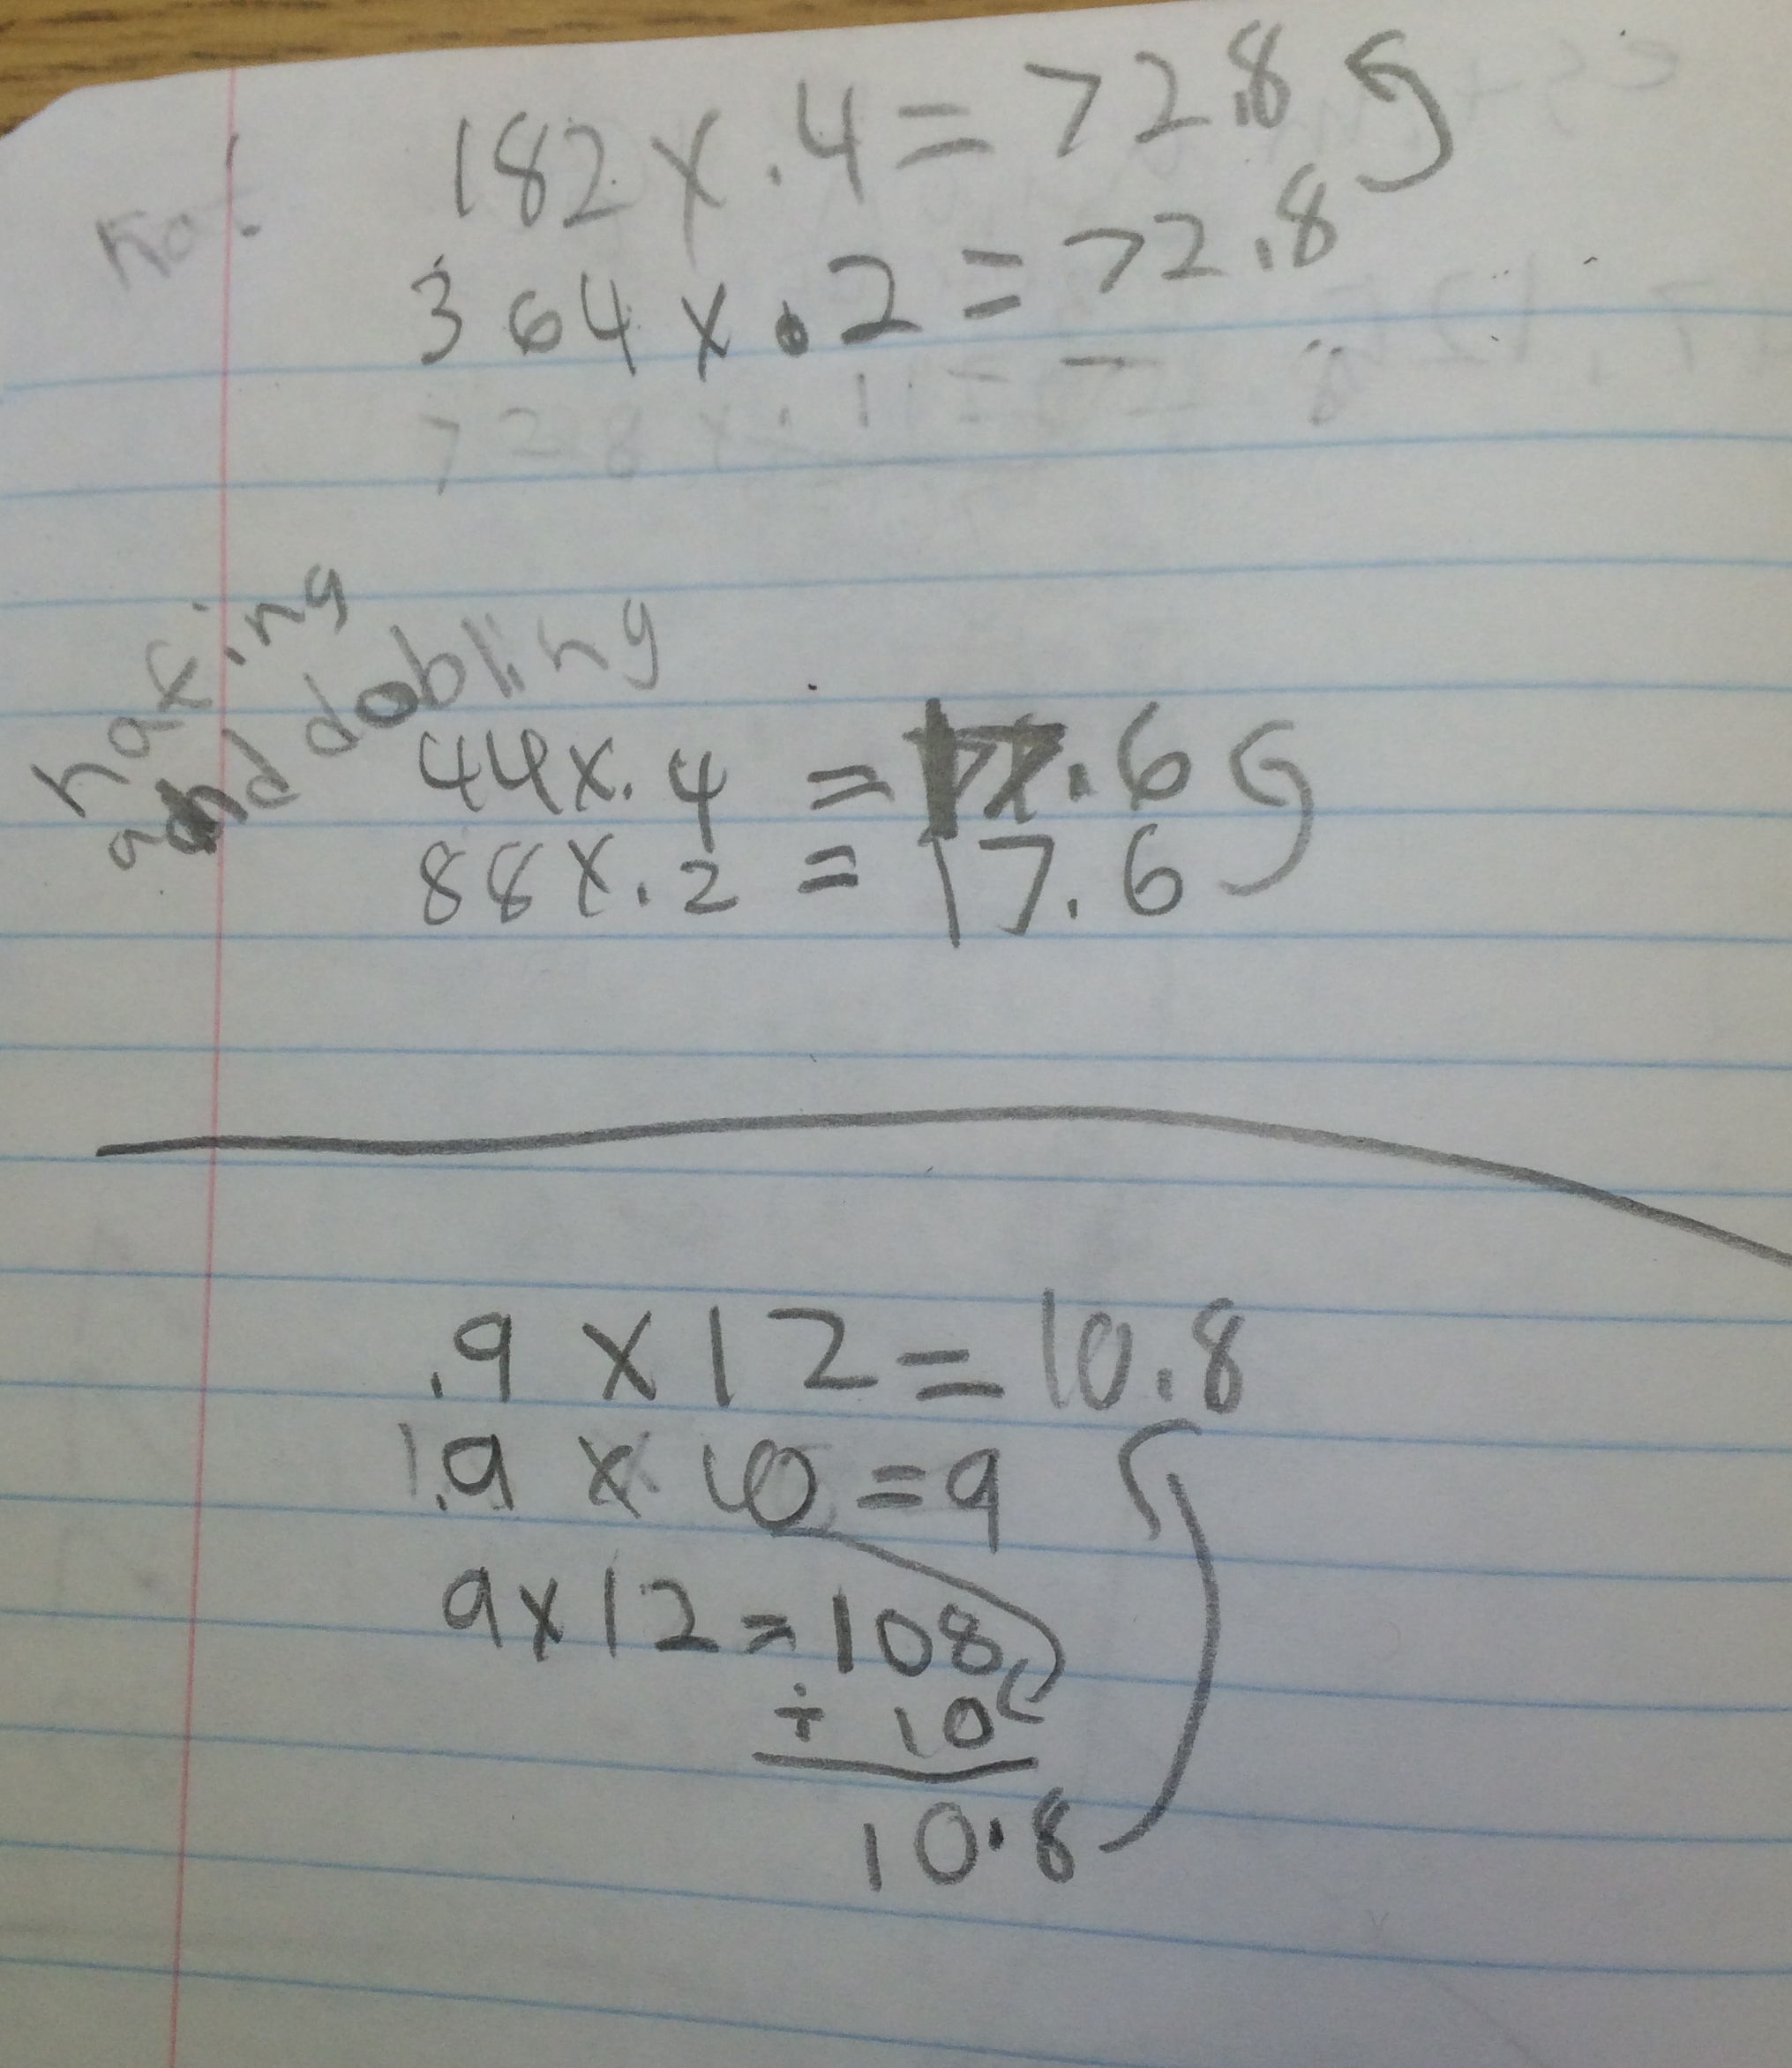 182 x .4 = 72.8
364 x .2 = 72.8
hafing
and dobling
44 x .4 = 17.6
88 x .2 = 17.6
.9 x 12 = 10.8
.9 x 10 = 9
9 x 12 = 108
÷ 10
10.8